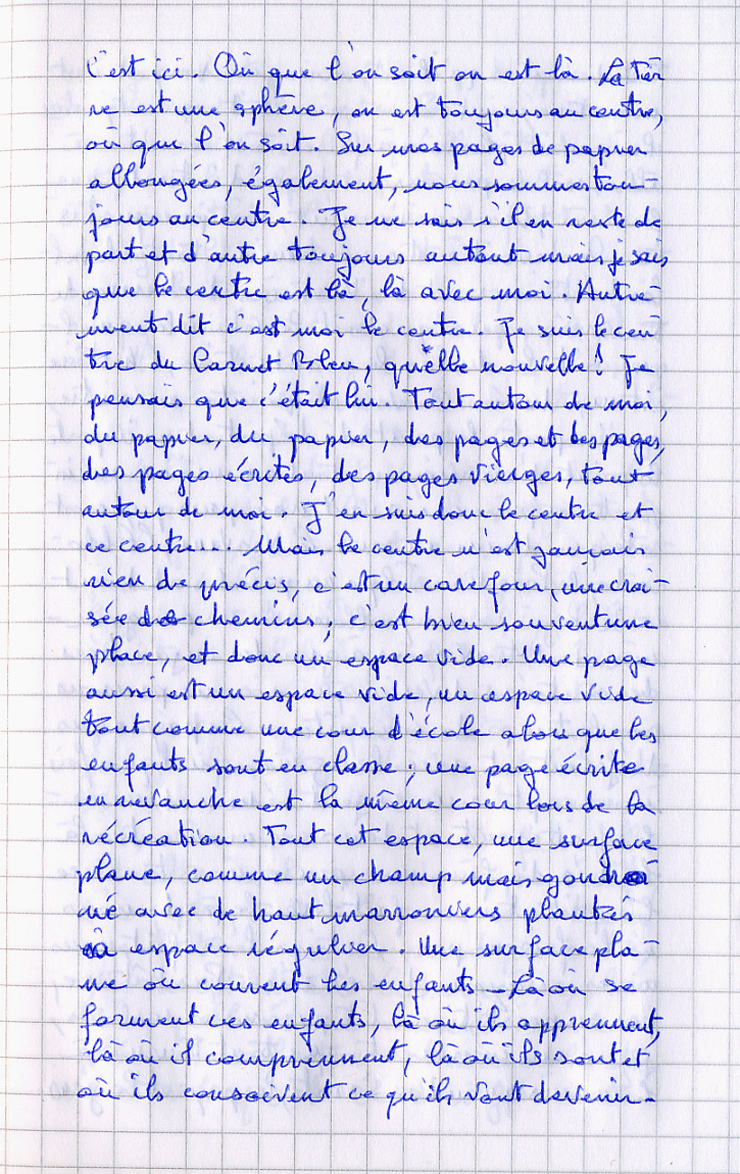 C'est ici. Où que l'on soit on est là. La Ter
re est une sphère, on est toujours au centre,
où que l'on soit. Sur mes pages de papier
allongées, également, nous sommes tou-
jours au centre. Je ne sais s'il en reste de
part et d'autre toujours autant mais je sais
que le centre est là, là avec moi. Autre-
ment dit c'est moi le centre. Je suis le cen
tre du Carnet Bleu, quelle nouvelle! Je
pensais que c'était lui. Tout autour de moi,
du papier, du papier, des pages et des pages,
des pages écrites, des pages vierges, tout
autour de moi. J'en suis donc le centre et
ce centre... Mais le centre n'est jamais
rien de précis, c'est un carefour, une croi-
sée de chemins, c'est bien souvent une
place, et donc un espace vide. Une page
aussi est un espace vide, un espace vide
tout comme une cour d'école alors que les
enfants sont en classe; une page écrite
en revanche est la même cour lors de la
récréation. Tout cet espace, une surface
plane, comme un champ mais goudron
né avec de haut marronniers plantés
à espace régulier. Une surface pla-
ne où courent les enfants - Là où se
forment ces enfants, là où ils apprennent,
là où il comprennent, là où ils sont et
où ils consoivent ce qu'ils vont devenir.